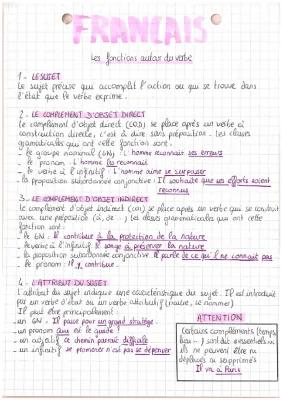 FRANÇAIS
Les fonctions autour du verbe
1 - LE SUJET
Le sujet précise qui accomplit l'action ou qui se trouve dans
l'état que le verbe exprime.
2 - LE COMPLÉMENT D'OBJET DIRECT
Le complément d'objet direct (COD) se place après un verbe à
construction directe, c'est à dire sans préposition. Les classes
grammaticales qui ont cette fonction sont :
- le groupe nominal (GN) : L'homme reconnaît ses erreurs
- le pronom : L'homme les reconnaît
- le verbe à l'infinitif : L'homme aime se surpasser
- la proposition subordonnée conjonctive : Il souhaite que ses efforts soient
reconnus
3 - LE COMPLÉMENT D'OBJET INDIRECT
Le complément d'objet indirect (COI) se place après un verbe qui se construit
avec une préposition (à, de...). Les classes grammaticales qui ont cette
fonction sont :
- le GN : Il contribue à la protection de la nature
- le verbe à l'infinitif : Il songe à préserver la nature
- la proposition subordonnée conjonctive : Il parle de ce qu'il ne connaît pas
- le pronom : Il y contribue
4 - L'ATTRIBUT DU SUJET
L'attribut du sujet indique une caractéristique du sujet. Il est introduit
par un verbe d'état ou un verbe attributif (naître, se nommer)
Il peut être principalement :
- un GN : Il passe pour un grand stratège
- un pronom : qui es-
- un adjectif : ce chemin paraît difficile
- un infinitif : se promener n'est pas se dépenser
ATTENTION
Certains compléments (temps,
lieu...) sont dits essentiels car
ils ne peuvent être ni
déplacés ni supprimés
Il va à Paris